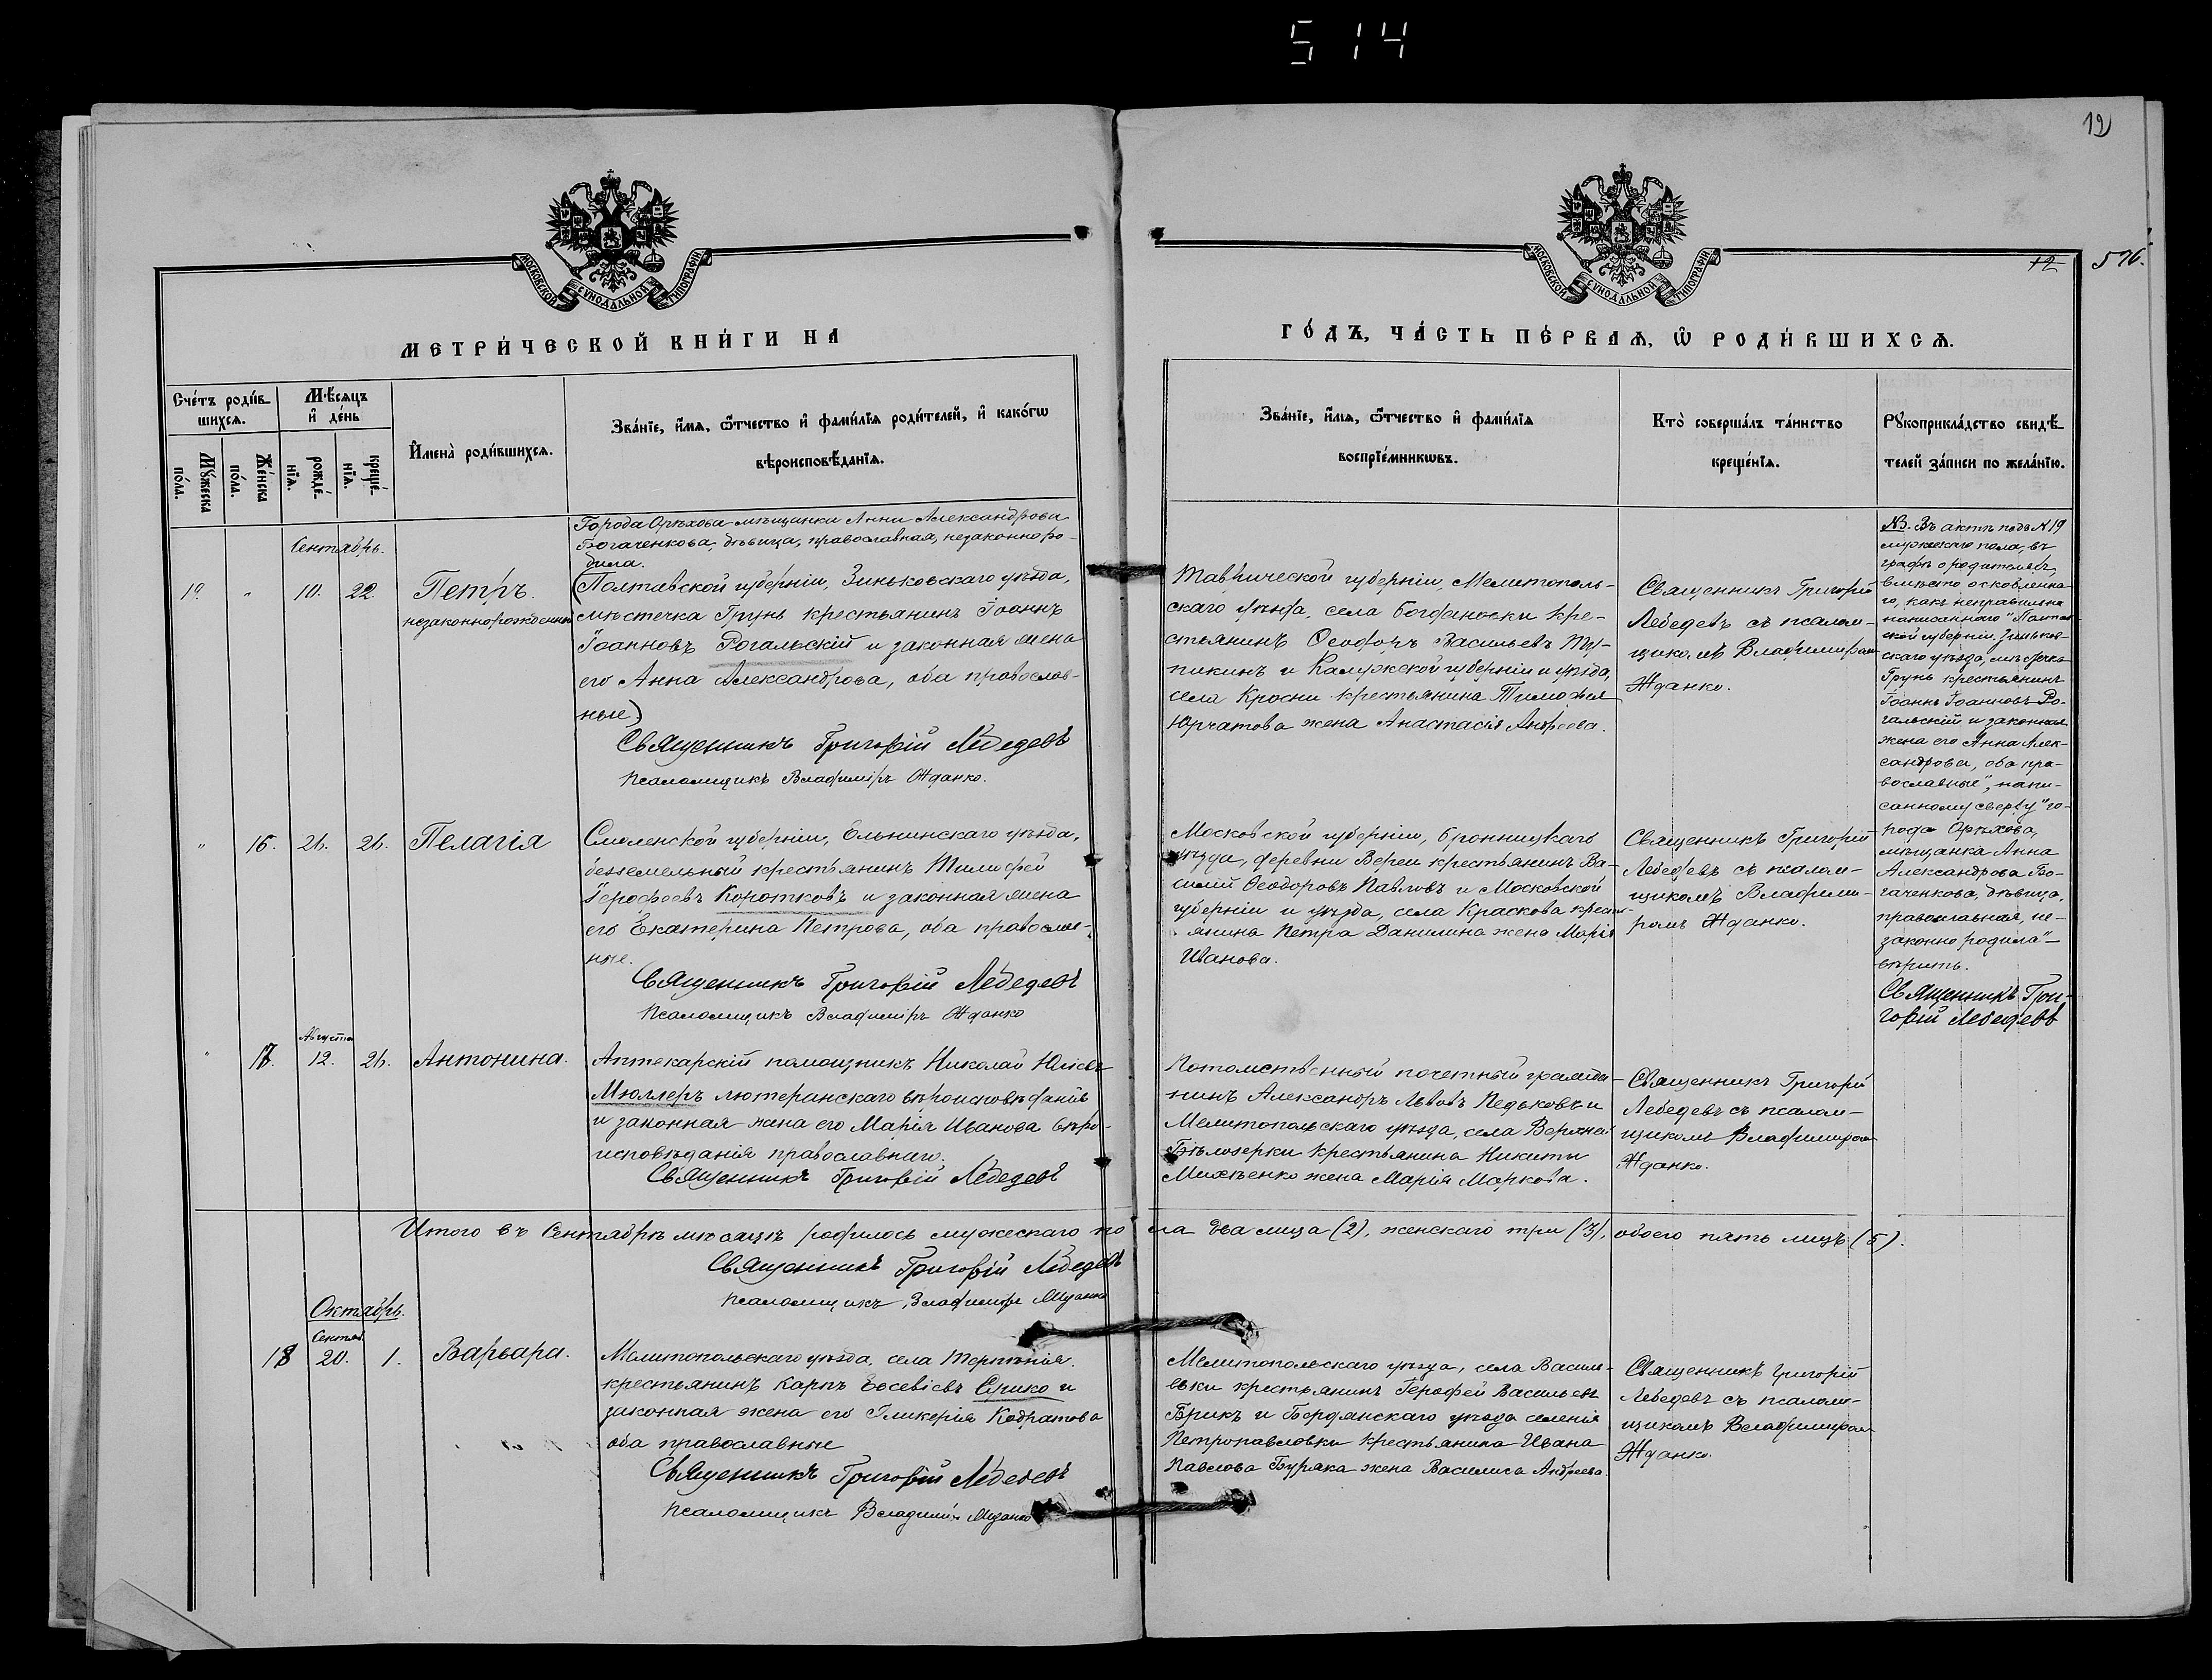 514
12
МОСКОВСКОЙ СѴНОДАЛЬНОЙ ТИПОГРАФІИ
МОСКОВСКОЙ СѴНОДАЛЬНОЙ ТИПОГРАФІИ
12
516.
МЕТРИ́ЧЕСКОЙ КНИ́ГИ НА
ГО́ДЪ, ЧА́СТЬ ПЕ́РВАѦ, Ѽ РОДИ́ВШИХСѦ.
Сче́тъ роди́в-
шихсѧ.
Мѣ́сѧцъ
и҆ де́нь
Мꙋ́жеска
по́ла.
Же́нска
по́ла.
рожде́-
нїѧ.
креще́-
нїѧ.
И҆мена̀ роди́вшихсѧ.
Зва́нїе, и҆́мѧ, ѻ҆́тчество и҆ фами́лїѧ роди́телей, и҆ како́гѡ
вѣроисповѣ́данїѧ.
Зва́нїе, и҆́мѧ, ѻ҆́тчество и҆ фами́лїѧ
воспрїе́мникѡвъ.
Кто̀ соверша́лъ та́инство
креще́нїѧ.
Рꙋкоприкла́дство свидѣ́-
телей за́писи по жела́нїю.
Сентябрь.
19. " 10. 22. Петръ.
незаконнорожденный
Города Орѣхова мѣщанка Анна Александрова
Богаченкова, дѣвица, православная, незаконно ро-
дила.
(Полтавской губерніи, Зиньковскаго уѣзда,
мѣстечка Грунь крестьянинъ Іоаннъ
Іоанновъ Рогальскій и законная жена
его Анна Александрова, оба православ-
ные)
Священникъ Григорій Лебедевъ
Псаломщикъ Владиміръ Жданко.
Таврической губерніи, Мелитополь-
скаго уѣзда, села Богдановки кре-
стьянинъ Ѳеодоръ Васильевъ
и Калужской губерніи и уѣзда,
села Кросни крестьянина Тимофея
Юрчатова жена Анастасія Андреева.
Священникъ Григорій
Лебедевъ съ псалом-
щикомъ Владиміромъ
Жданко.
NB. Въ актѣ подъ N 19
мужескаго пола, въ
графѣ о родителяхъ,
вмѣсто оскобленна-
го, какъ неправильно
написаннаго "Полтав-
ской губерніи, Зиньков-
скаго уѣзда, мѣстечка
Грунь крестьянинъ
Іоаннъ Іоанновъ Ро-
гальскій и законная
жена его Анна Алек-
сандрова, оба пра-
вославные", напи-
санному сверху "го-
рода Орѣхова,
мѣщанка Анна
Александрова Бо-
гаченкова, дѣвица,
православная, не-
законно родила"—
вѣрить.
Священникъ Гри-
горій Лебедевъ
" 16. 26. 26. Пелагія
Смоленской губерніи, Ельнинскаго уѣзда,
безземельный крестьянинъ Тимофей
Герофеевъ Коротковъ и законная жена
его Екатерина Петрова, оба православ-
ные.
Священникъ Григорій Лебедевъ
Псаломщикъ Владиміръ Жданко
Московской губерніи, Бронницкаго
уѣзда, деревни Вереи крестьянинъ Ва-
силій Ѳеодоровъ Павловъ и Московской
губерніи и уѣзда, села Краскова кресть-
янина Петра Данилина жена Марія
Иванова.
Священникъ Григорій
Лебедевъ съ псалом-
щикомъ Владимі-
ромъ Жданко.
Августа
" 17. 12. 26. Антонина.
Аптекарскій помощникъ Николай
Мюллеръ лютеранскаго вѣроисповѣданія
и законная жена его Марія Иванова вѣро-
исповѣданія православнаго.
Священникъ Григорій Лебедевъ
Потомственный почетный гражда-
нинъ Александръ Львовъ Педьковъ и
Мелитопольскаго уѣзда, села Верхней
Бѣлозерки крестьянина Никиты
Михѣенко жена Марія Маркова.
Священникъ Григорій
Лебедевъ съ псалом-
щикомъ Владиміромъ
Жданко.
Итого въ Сентябрѣ мѣсяцѣ родилось мужескаго по ла два лица (2), женскаго три (3), обоего пять лицъ (5).
Священникъ Григорій Лебедевъ
Псаломщикъ Владиміръ Жданко
Октябрь.
Сентяб.
18 20. 1. Варвара.
Мелитопольскаго уѣзда, села Терпѣнія
крестьянинъ Карпъ Евсевіевъ и
законная жена его Гликерія Кодратова
оба православные
Священникъ Григорій Лебедевъ
Псаломщикъ Владиміръ Жданко
Мелитопольскаго уѣзда, села Василь-
евки крестьянинъ Герофей Васильевъ
Брикъ и Бердянскаго уѣзда селенія
Петропавловки крестьянина Ивана
Павлова Буряка жена Василиса Андреева.
Священникъ Григорій
Лебедевъ съ псалом-
щикомъ Владиміромъ
Жданко.